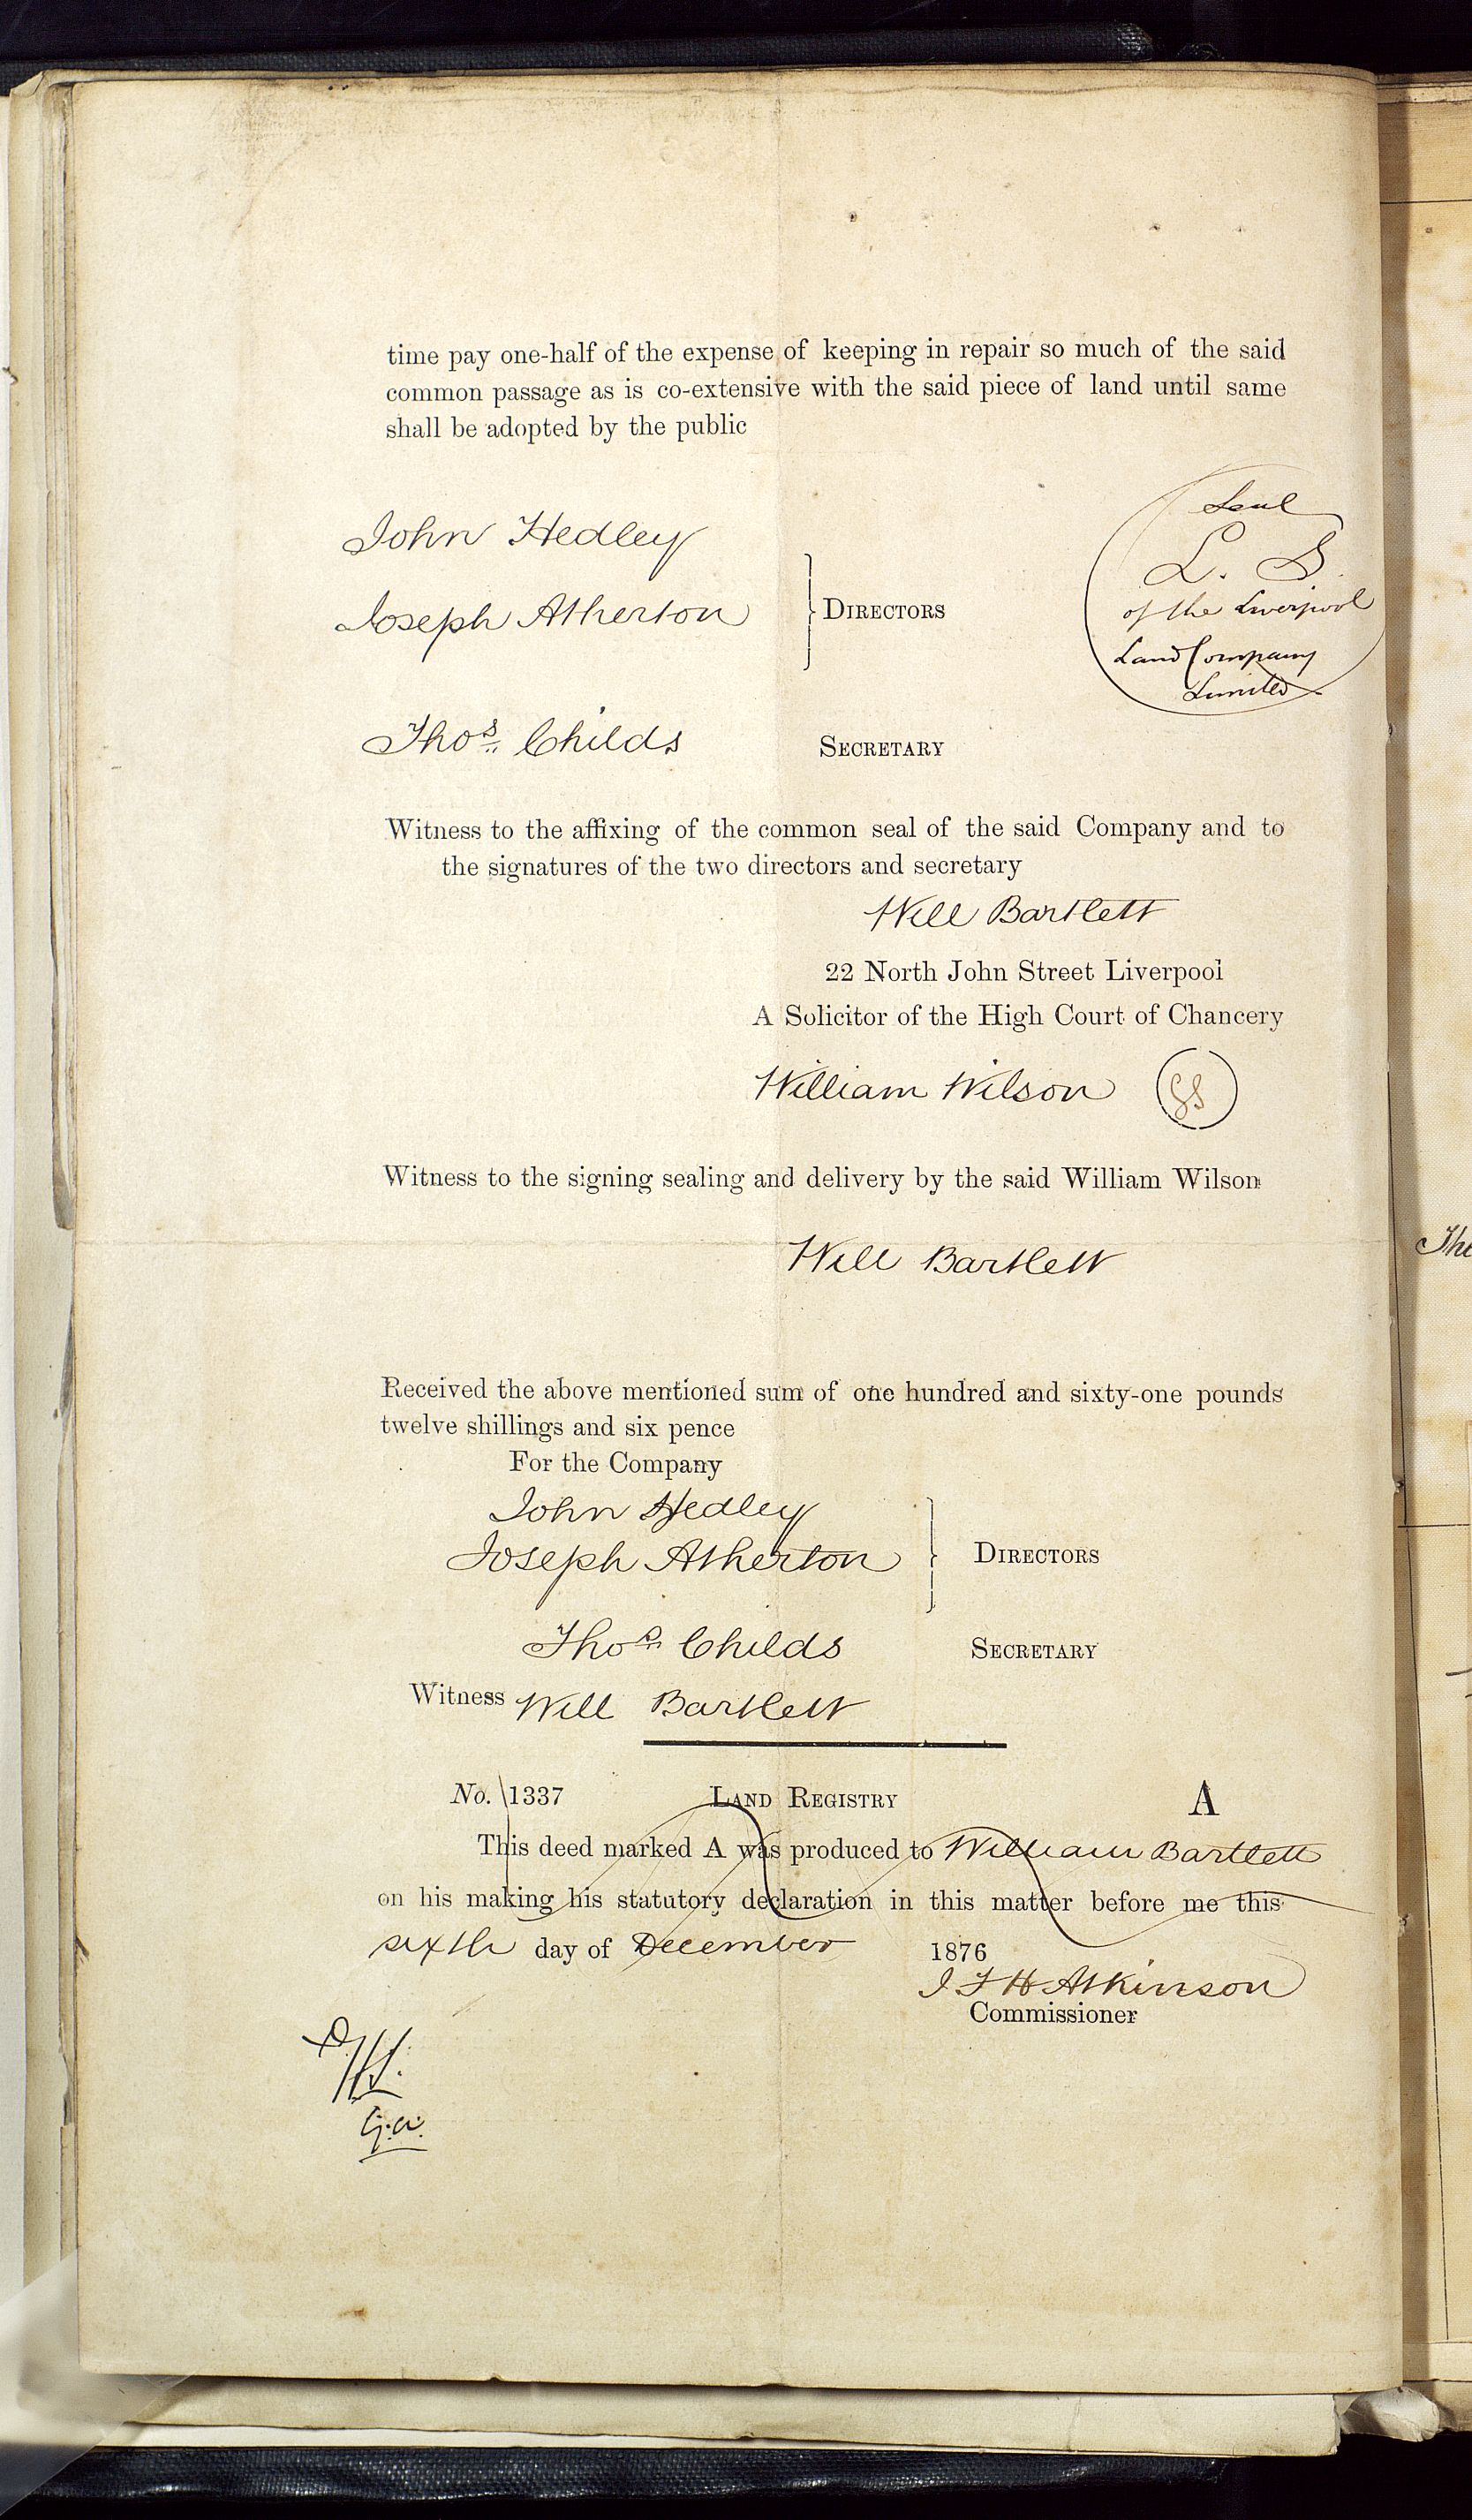 time pay one-half of the expense of keeping in repair so much of the said
common passage as is co-extensive with the said piece of land until same
shall be adopted by the public
John Hedley
Joseph Atherton
DIRECTORS
Seal
L. S.
of the Liverpool
Land Company
Limited
Thos. Childs
SECRETARY
Witness to the affixing of the common seal of the said Company and to
the signatures of the two directors and secretary
Will Bartlett
22 North John Street Liverpool
A Solicitor of the High Court of Chancery
William Wilson
Witness to the signing sealing and delivery by the said William Wilson
Will Bartlett
Received the above mentioned sum of one hundred and sixty-one pounds
twelve shillings and six pence
For the Company
John Hedley
Joseph Atherton
DIRECTORS
Thos. Childs
SECRETARY
Witness Will Bartlett
No. 1337 LAND REGISTRY A
This deed marked A was produced to William Bartlett
on his making his statutory declaration in this matter before me this
sixth day of December 1876
J F H Atkinson
Commissioner